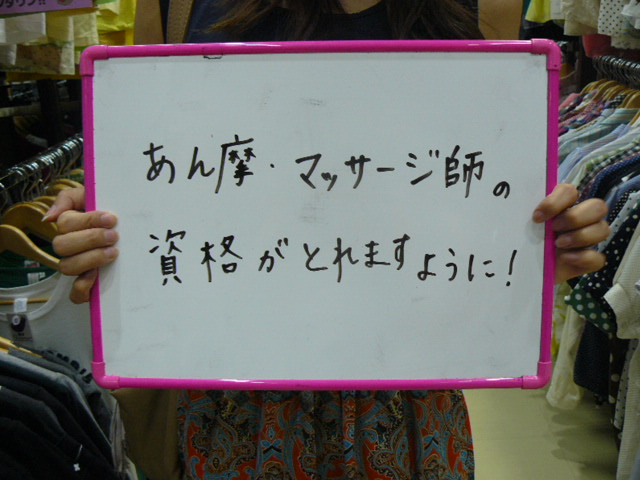 あん摩・マッサージ師の
資格がとれますように!